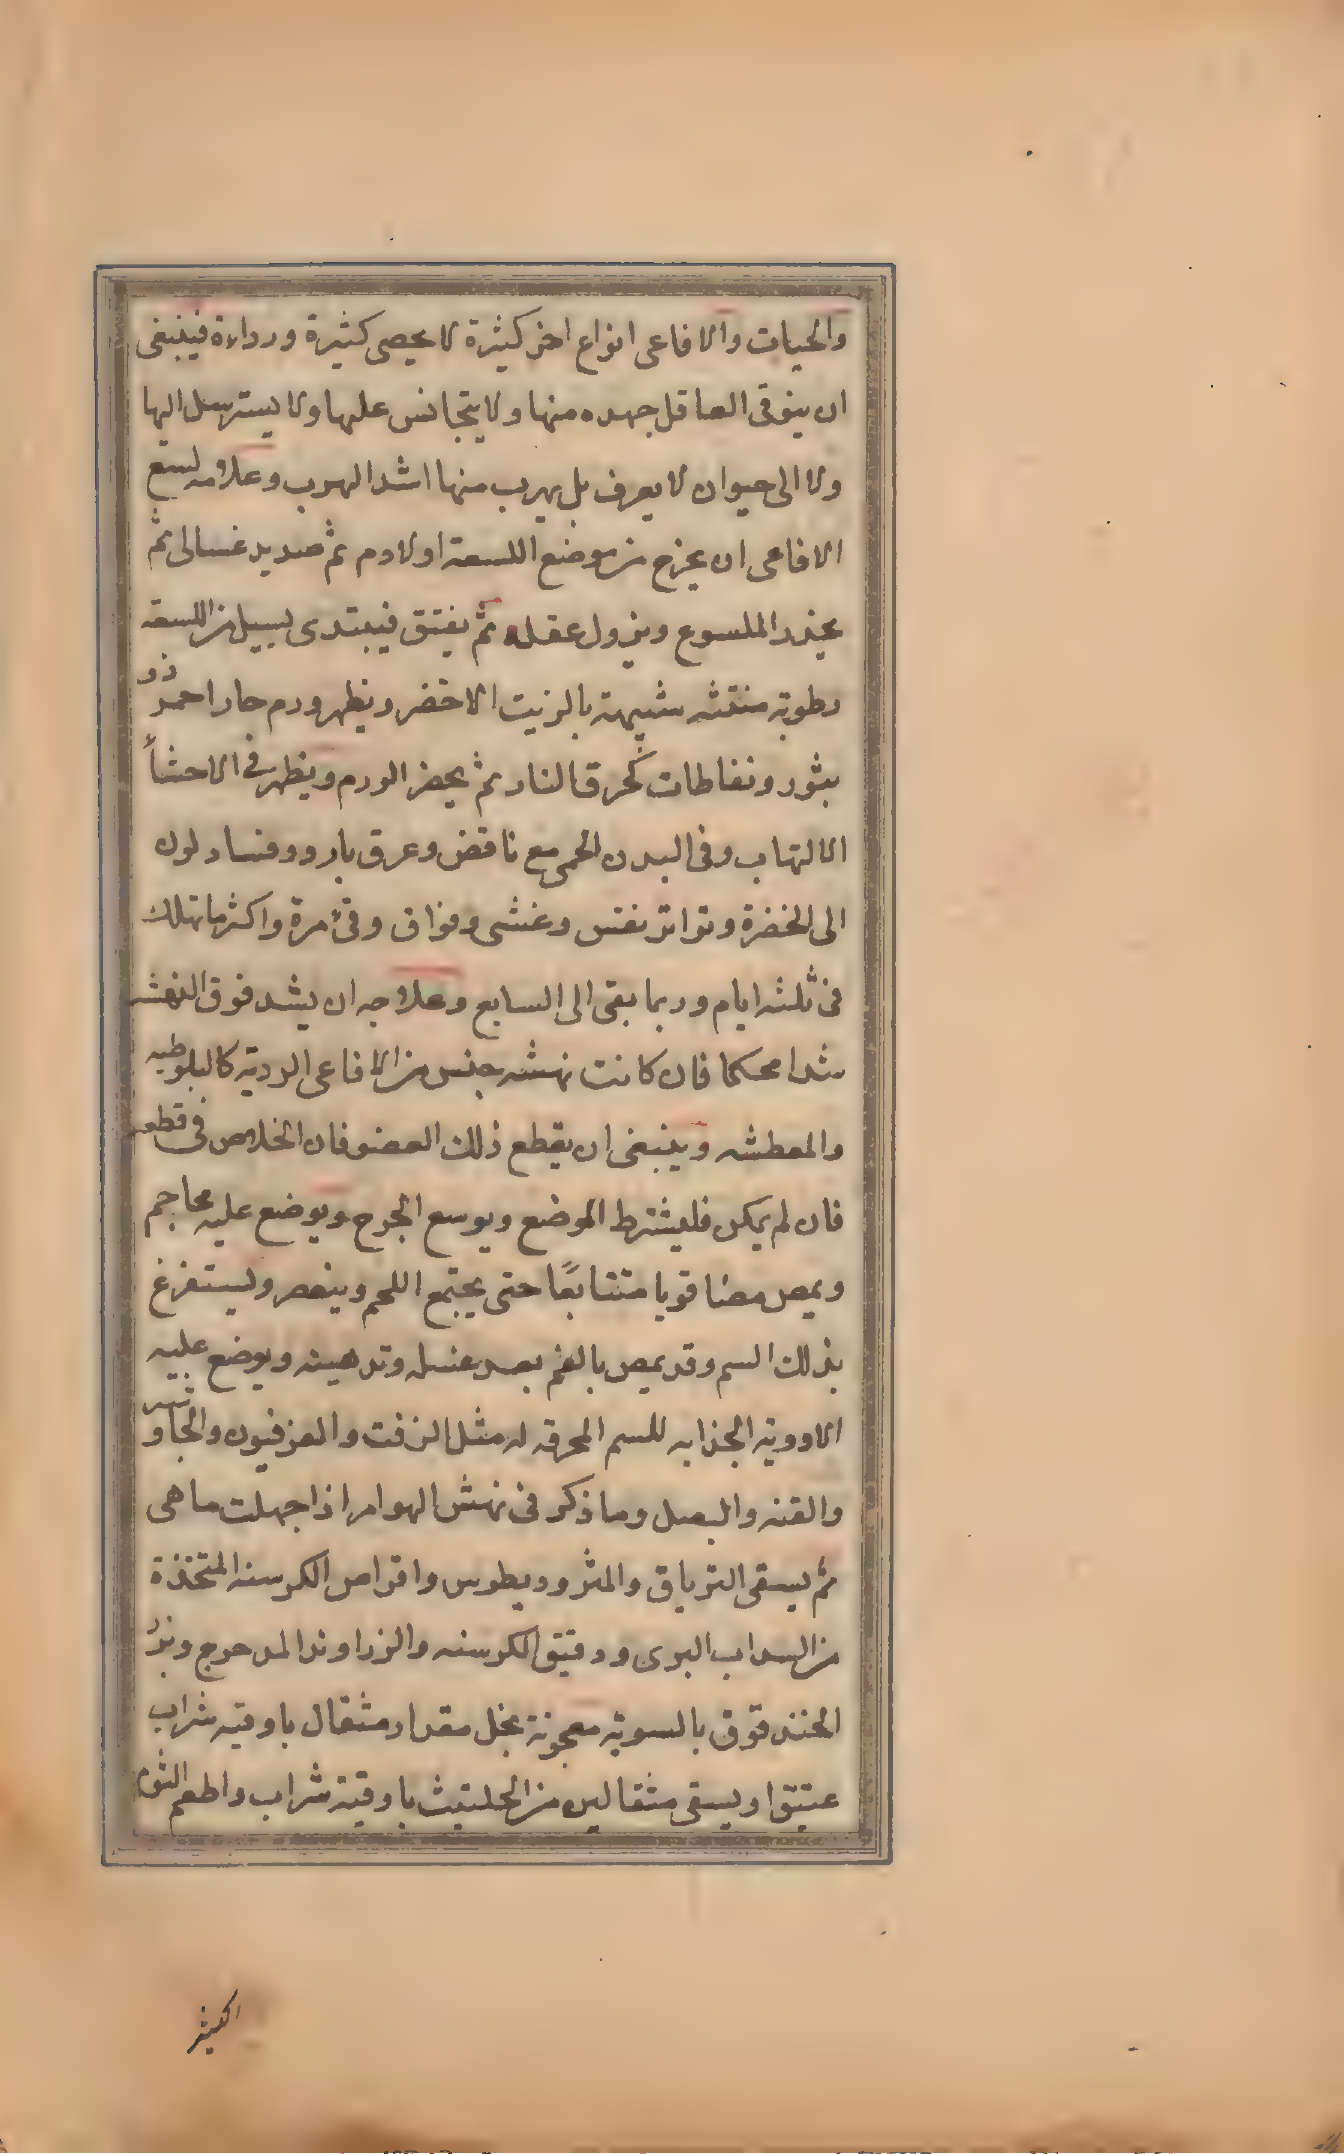 والحيات والافاعى انواع اخر كثيرة لا يحصى كثيرة ورداءة فينبغى
ان يتوقى العاقل جهده منها ولا يتجانس عليها ولا يسترسل اليها
ولا الى حيوان لا يعرف بل يهرب منها اشد الهرب وعلامه لسع
الافاعى ان يخرج من موضع اللسعة اولا دم ثم صديد غسالى ثم
يخدر الملسوع ويزول عقله ثم يفتق فيبتدى يسيل من اللسعة
رطوبة منتنه شبيهة بالزيت الاخضر ويظهر ورم حار احمر ذو
بثور ونفاطات كحرق النار ثم يحضر الورم ويظهر فى الاحشأ
الالتهاب وفى البدن الحمى مع نافض وعرق بارد وفساد لون
الى الخضرة وتواتر نفس وغشى وفواق وقئ مرة واكثر ما تهلك
فى ثلثه ايام وربما بقى الى السابع وعلاجه ان يشد فوق النهشه
شدا محكما فان كانت نهشه جنس من الافاعى الردية كالبلوطيه
والمعطشه وينبغى ان يقطع ذلك العضو فان الخلاص فى قطعه
فان لم يمكن فليشترط الموضع ويوسع الجرح ويوضع عليه محاجم
ويمص مصا قويا متتابعًا حتى يجتمع اللحم وينعصر وليستفرغ
بذلك السم وقد يمص بالفم بعد غسله وتدهينه ويوضع عليه
الادوية الجذابه للسم المحرقه له مثل الزفت والفرفيون والجاوشير
والقنه والبصل وما ذكر فى نهش الهوام اذا جهلت ما هى
ثم يسقى الترياق والمثروديطوس واقراص الكرسنه المتخذة
من السداب البرى ودقيق الكرسنه والزراوند المدحرج وبزر
الحندقوق بالسوية معجونة بخل مقدار مثقال باوقيه شراب
عتيق او يسقى مثقالين من الحلتيث باوقية شراب واطعم الثوم
الكثير